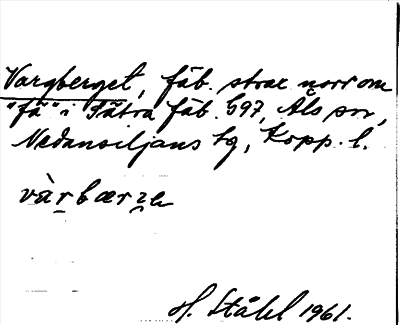 Vargberget, fäb. strax norr om
"fä" i Sätra fäb. G97, Als sn,
Nedansiljans tg, Kopp. l.
vàrbærə
H. Ståhl 1961.